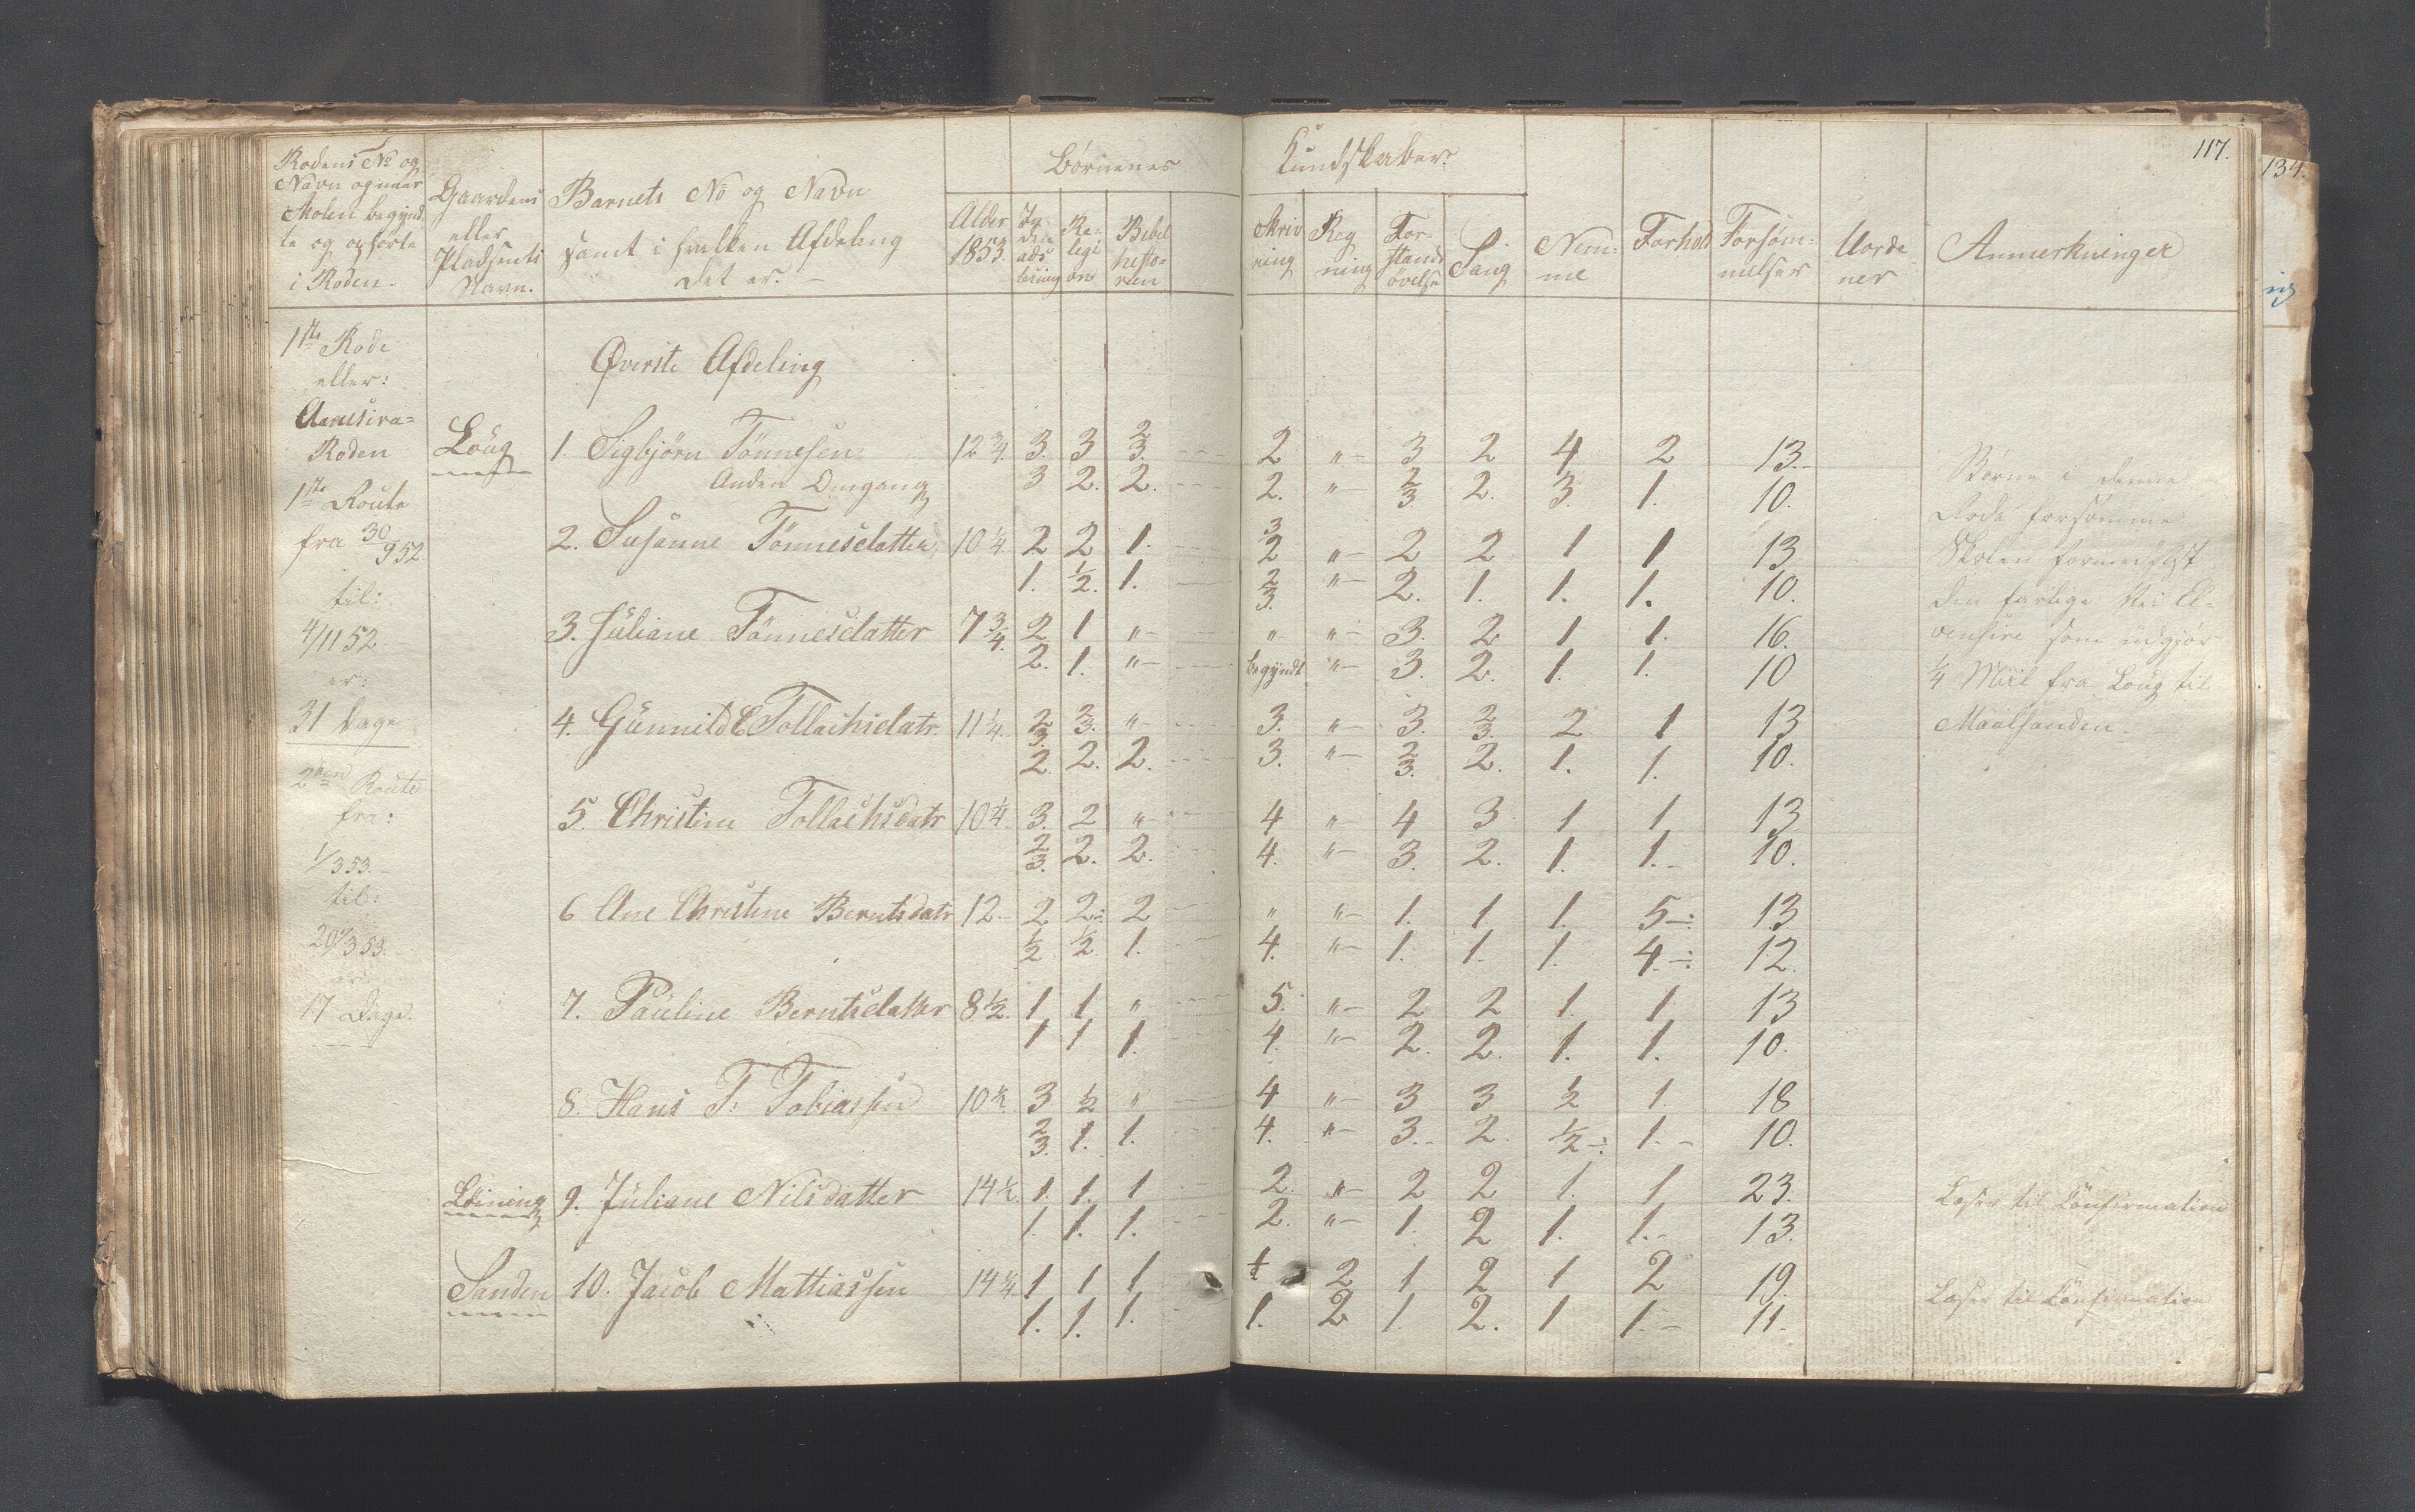 117.
134.
Rodens No og
Navn og naar
Skolen begynd-
te og ophørte
i Roden.
Gaardens
eller
Pladsents
Navn.
Barnets No og Navn
samt i hvilken Afdeling
det er. –
Børnenes
Kundskaber.
Alder
1853.
In-
den
ads
læsning
Re-
legi
on
Bibel
histo-
rien
Skriv
ning
Reg
ning
For-
stands
øvelse
Sang
Nem-
me
Forhold
Forsøm-
melser
Uorde
ner
Anmerkninger
1ste Rode
eller:
Roden
1ste Route
fra 30/9 52.
til:
4/11 52.
er:
31 Dage
2den Route
fra:
1/3 53.
til:
20/3 53.
er
17 Dage.
Øverste Afdeling
Loug 1. Sigbjørn Tønnesen 12 3/4. 3. 3 2/3. 2 " 3 2 4 2 13.
Anden Omgang 3 2. 2. 2. " 2/3. 2. 3. 1. 10.
2. Susanne Tønnesdatter 10 1/4. 2 2 1. 3/2 " 2 2 1 1 13
1. 1/2. 1. 2/3. " 2. 1. 1. 1. 10.
3. Juliane Tønnesdatter 7 3/4. 2 1 " " " 3. 2 1 1. 16.
2. 1. " begyndt " 3. 2. 1. 1. 10
4. Gunnild E Tollachsdatr. 11 1/4. 2/3. 2/3. " 3. " 3. 2/3. 2 1 13
2. 2. 2. 3. " 2/3. 2. 1. 1. 10.
5. Christine Tollachsdatr 10 1/4. 3. 2 " 4 " 4 3 1 1 13
2/3. 2. 2. 4. " 3. 2. 1. 1. 10.
6 Ane Christine Berntsdatr 12. 2 2 2 " " 1. 1. 1. 5 13
1/2 1/2. 1. 4. " 1. 1. 1. 4. 12.
7. Pauline Berntsdatter 8 1/2. 1 1 " 5. " 2 2 1. 1 13
1 1 1. 4. " 2. 2. 1. 1. 10.
8. Hans T. Tobiassen 10 1/2. 3 1/2 " 4 " 3 3 1/2 1 18
2/3. 1. 1. 4. " 3. 2. 1/2 1. 10.
9. Juliane Nilsdatter 14 1/2. 1. 1. 1 2. " 2 2 1. 1 23.
1. 1. 1. 2. " 1. 2 1. 1. 13.
Sanden 10. Jacob Mattiassen 14 1/4 1 1 1 1/2 2 1 2 1 2 19.
1. 1. 1. 1. 2 1. 2. 1 1. 11.
Børne i denne
Rode forsømme
Skolen formedelst
den farlige Vei
som udgjør
1/4 Miil fra Loug til
Maalsanden.
Læser til Confirmation
Læser til Confirmation